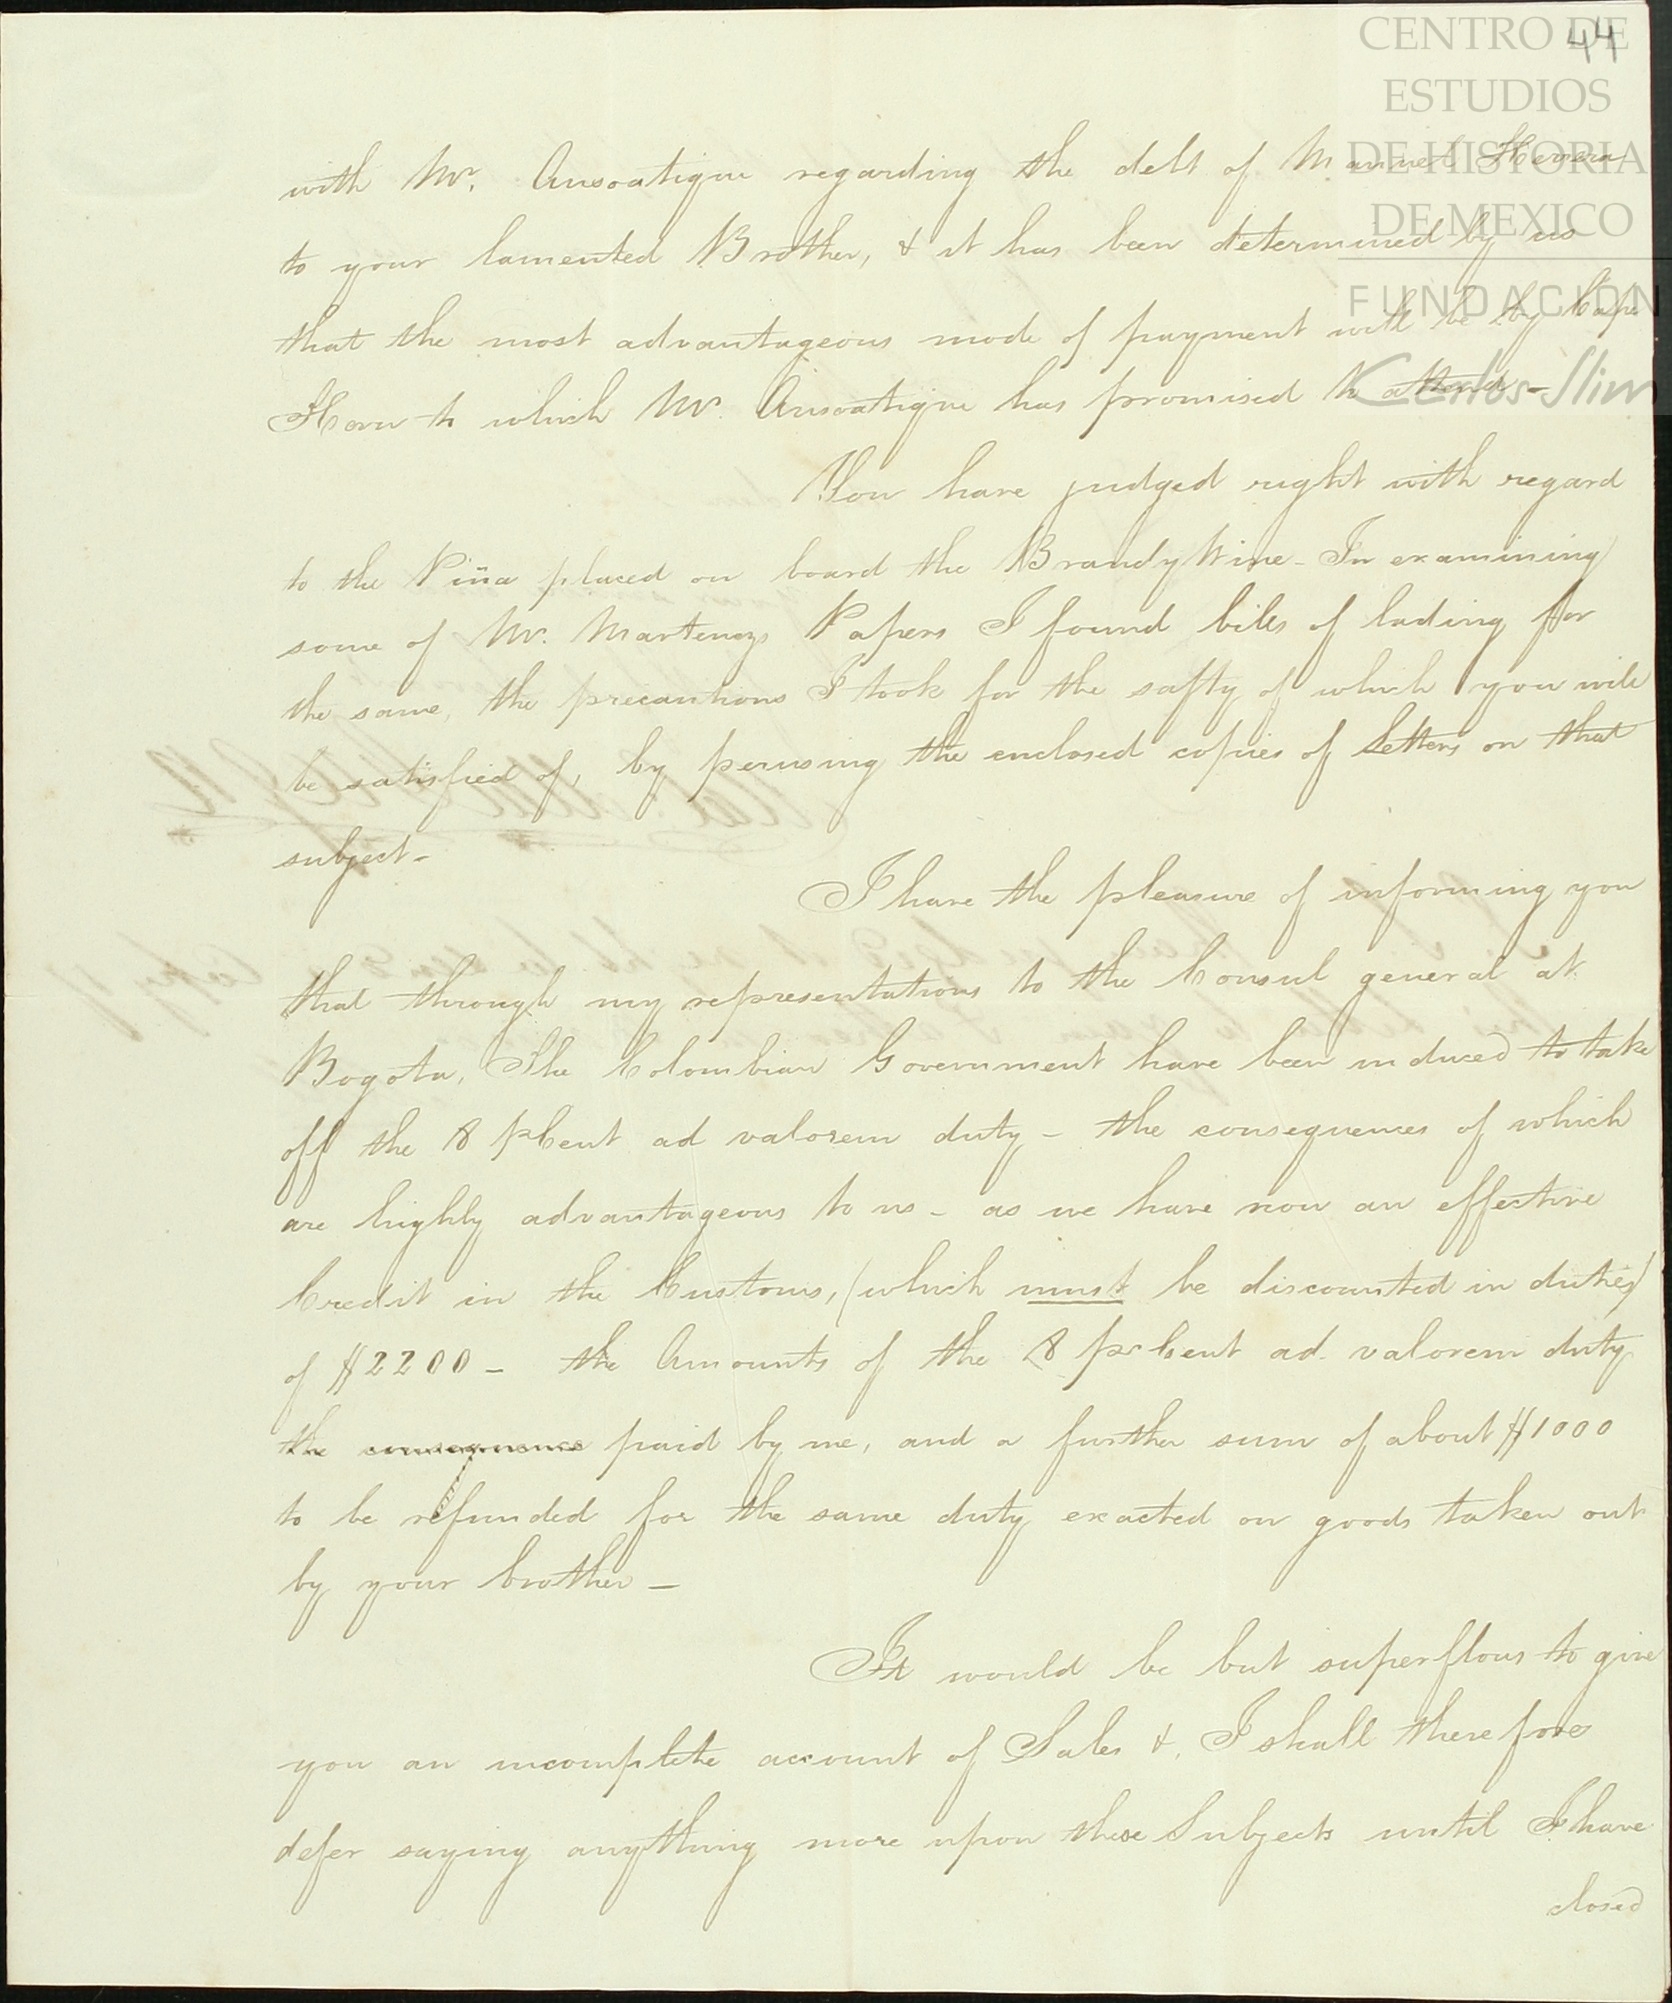 44
CENTRO DE
ESTUDIOS
DE HISTORIA
DE MEXICO
FUNDACIÓN
Carlos Slim
with Mr. Ansoatigue regarding the debt of Manuel Herrera
to your lamented Brother, & it has been determined by us
that the most advantageous mode of payment will be by Cape
Horn to which Mr. Ansoatigue has promised to attend -
You have judged right with regard
to the Piña placed on board the BrandyWine - In examining
some of Mr. Martenezs Papers I found bills of lading for
the same, the precautions I took for the safty of which you will
be satisfied of, by perusing the enclosed copies of Letters on that
subject -
I have the pleasure of informing you
that through my representations to the Consul general at
Bogota, The Colombian Government have been induced to take
off the 8 pCent ad valorem duty - the consequences of which
are highly advantageous to us - as we have now an effective
Credit in the Customs, (which must be discounted in duties)
of $2200 - the Amounts of the 8 pr Cent ad valorem duty
the consequence paid by me, and a further sum of about $1000
to be refunded for the same duty exacted on goods taken out
by your brother -
It would be but superflous to give
you an incomplete account of Sales &. I shall therefore
defer saying anything more upon these Subjects until I have
closed